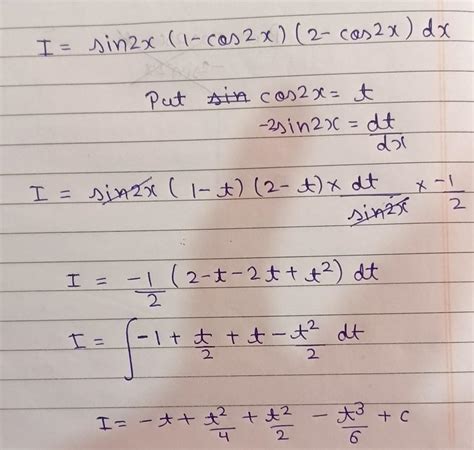 I = sin2x (1-cos2x) (2-cos2x) dx
Put sin cos2x = t
-2sin2x = dt/dx
I = sin2x (1-t) (2-t) x dt/sin2x x -1/2
I = -1/2 (2-t-2t+t²) dt
I = ∫ -1 + t/2 + t - t²/2 dt
I = -t + t²/4 + t²/2 - t³/6 + c